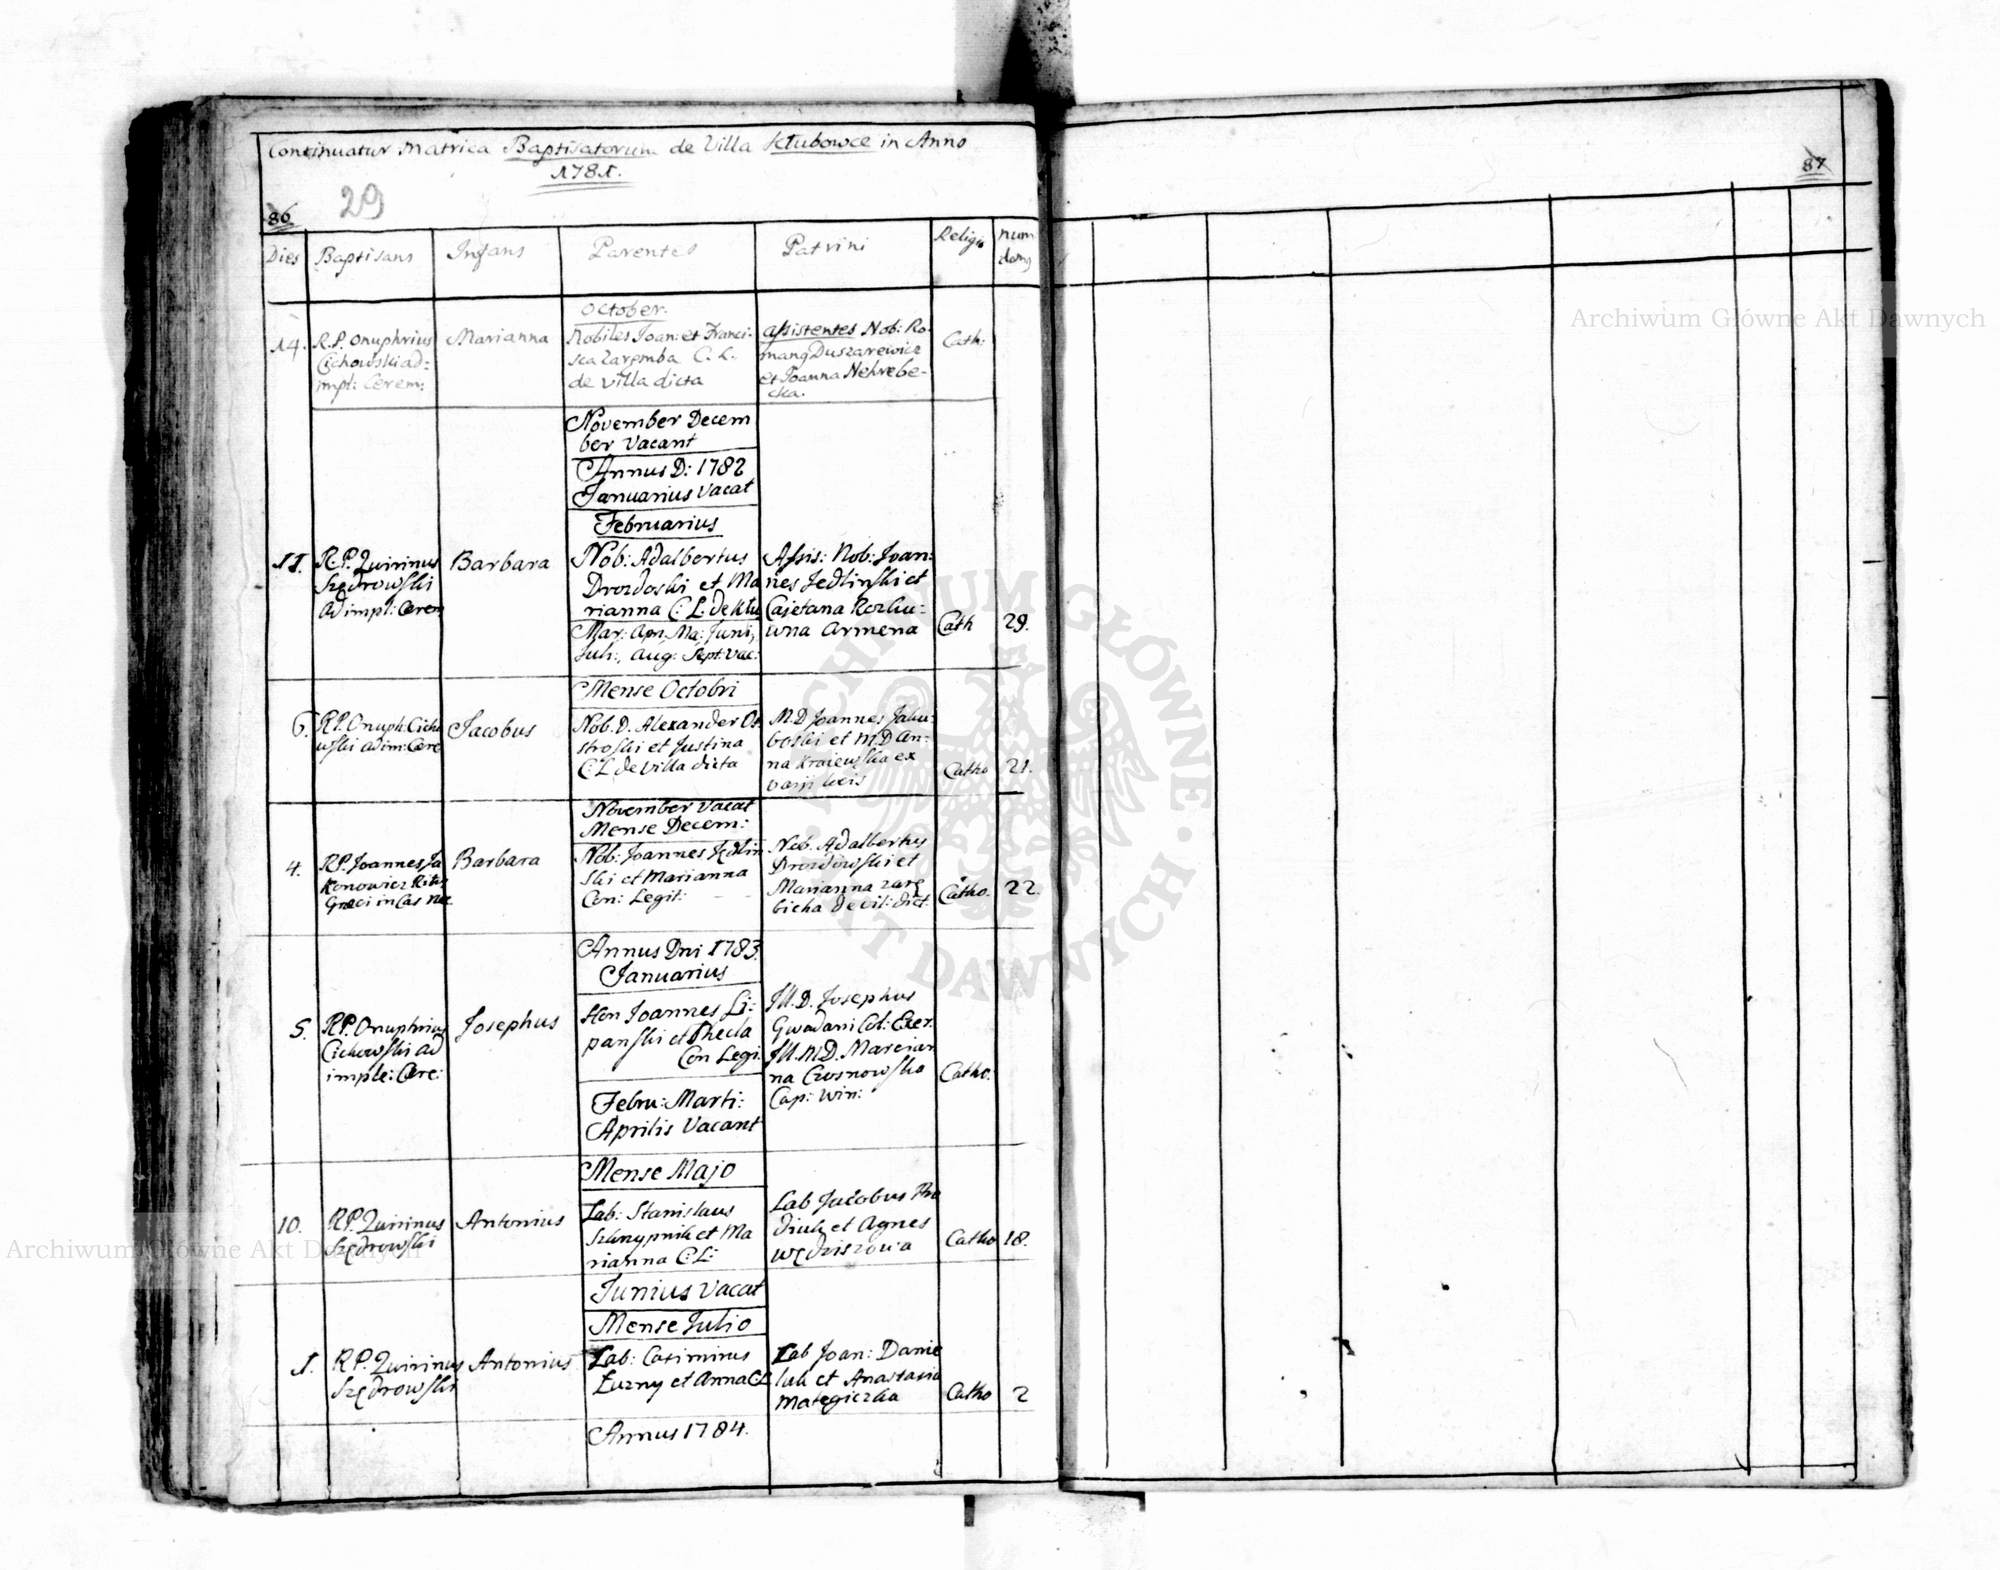 Continuatur Matrica Baptisatorum de Villa Kłubowce in Anno
1781.
86
29
87
Dies
Baptisans
Infans
Parentes
Patrini
Religio
num
domg
October.
14.
R.P. Onuphrius
Cichowski ad=
impl: Cerem:
Marianna
Nobiles Joan: et Franci-
sca Zaremba C. L.
de villa dicta
Assistentes Nob: Ro-
mang Duszarewicz
et Joanna Nehrebe-
cka.
Cath:
November Decem
ber Vacant
Annus D: 1782
Januarius Vacat
Februarius
11.
R.P. Quirinus
Szędrowski
ad impl: Cerem
Barbara
Nob: Adalbertus
Drozdoski et Ma
rianna C: L: de Kłu
Assis: Nob: Joan:
nes Jedlinski et
Cajetana Rozku-
wna Armena
Cath
29.
Mar: Apr, Ma: Juni,
Juli:, Aug: Sept: Vac:
Mense Octobri
6.
R.P. Onuph. Cicho
wski ad im: Cere
Jacobus
Nob. D. Alexander Os
troski et Justina
C: L de Villa dicta
M. D Joannes Jaku-
boski et M D An-
na Kraiewska ex
varijs locis
Catho
21.
November Vacat
Mense Decem:
4.
R.P. Joannes Ja
konowicz Ritus
Graeci in Cas Nec
Barbara
Nob: Joannes Jedlin
ski et Marianna
Con: Legit:
Nob. Adalbertus
Drozdowski et
Marianna Zarę
bicka de vil: dict
Catho.
22.
Annus Dni 1783.
Januarius
5.
R.P. Onuphrius
Cichowski ad
imple: Cere:
Josephus
Hon Joannes Li-
panski et Thecla
Con Legi.
Ill. D. Josephus
Gwadani Col: Exer.
Ill. M D. Marcian
na Czosnowska
Cap: Win:
Catho:
Febru: Marti:
Aprilis Vacant
Mense Majo
10.
R.P. Quirinus
Szędrowski
Antonius
Lab: Stanislaus
Szknypnik et Ma
rianna C: L:
Lab Jacobus
diuk et Agnes
Wędziszowa
Catho
18.
Junius Vacat
Mense Julio
1.
R.P. Quirinus
Szędrowski
Antonius
Lab: Casimirus
Luzny et Anna C L
Lab Joan: Danie
luk et Anastasia
Mategiczka
Catho
2
Annus 1784.
Archiwum Główne Akt Dawnych
Archiwum Główne Akt Dawnych
ARCHIWUM GŁÓWNE · AKT DAWNYCH ·